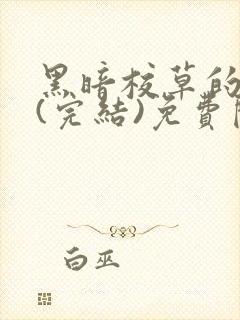 黑暗校草的
(完結)免費
白巫